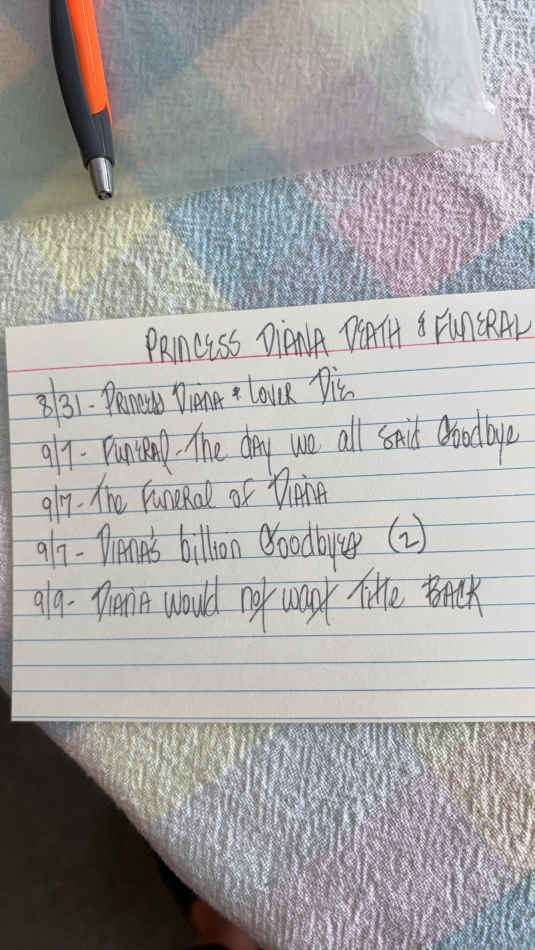 PRINCESS DIANA DEATH & FUNERAL
8/31 - PRINCESS DIANA & LOVER DIE
9/7 - FUNERAL - The day we all said Goodbye
9/7 - The Funeral of DIANA
9/7 - DIANA'S billion Goodbyes (2)
9/9 - DIANA would not want Title BACK